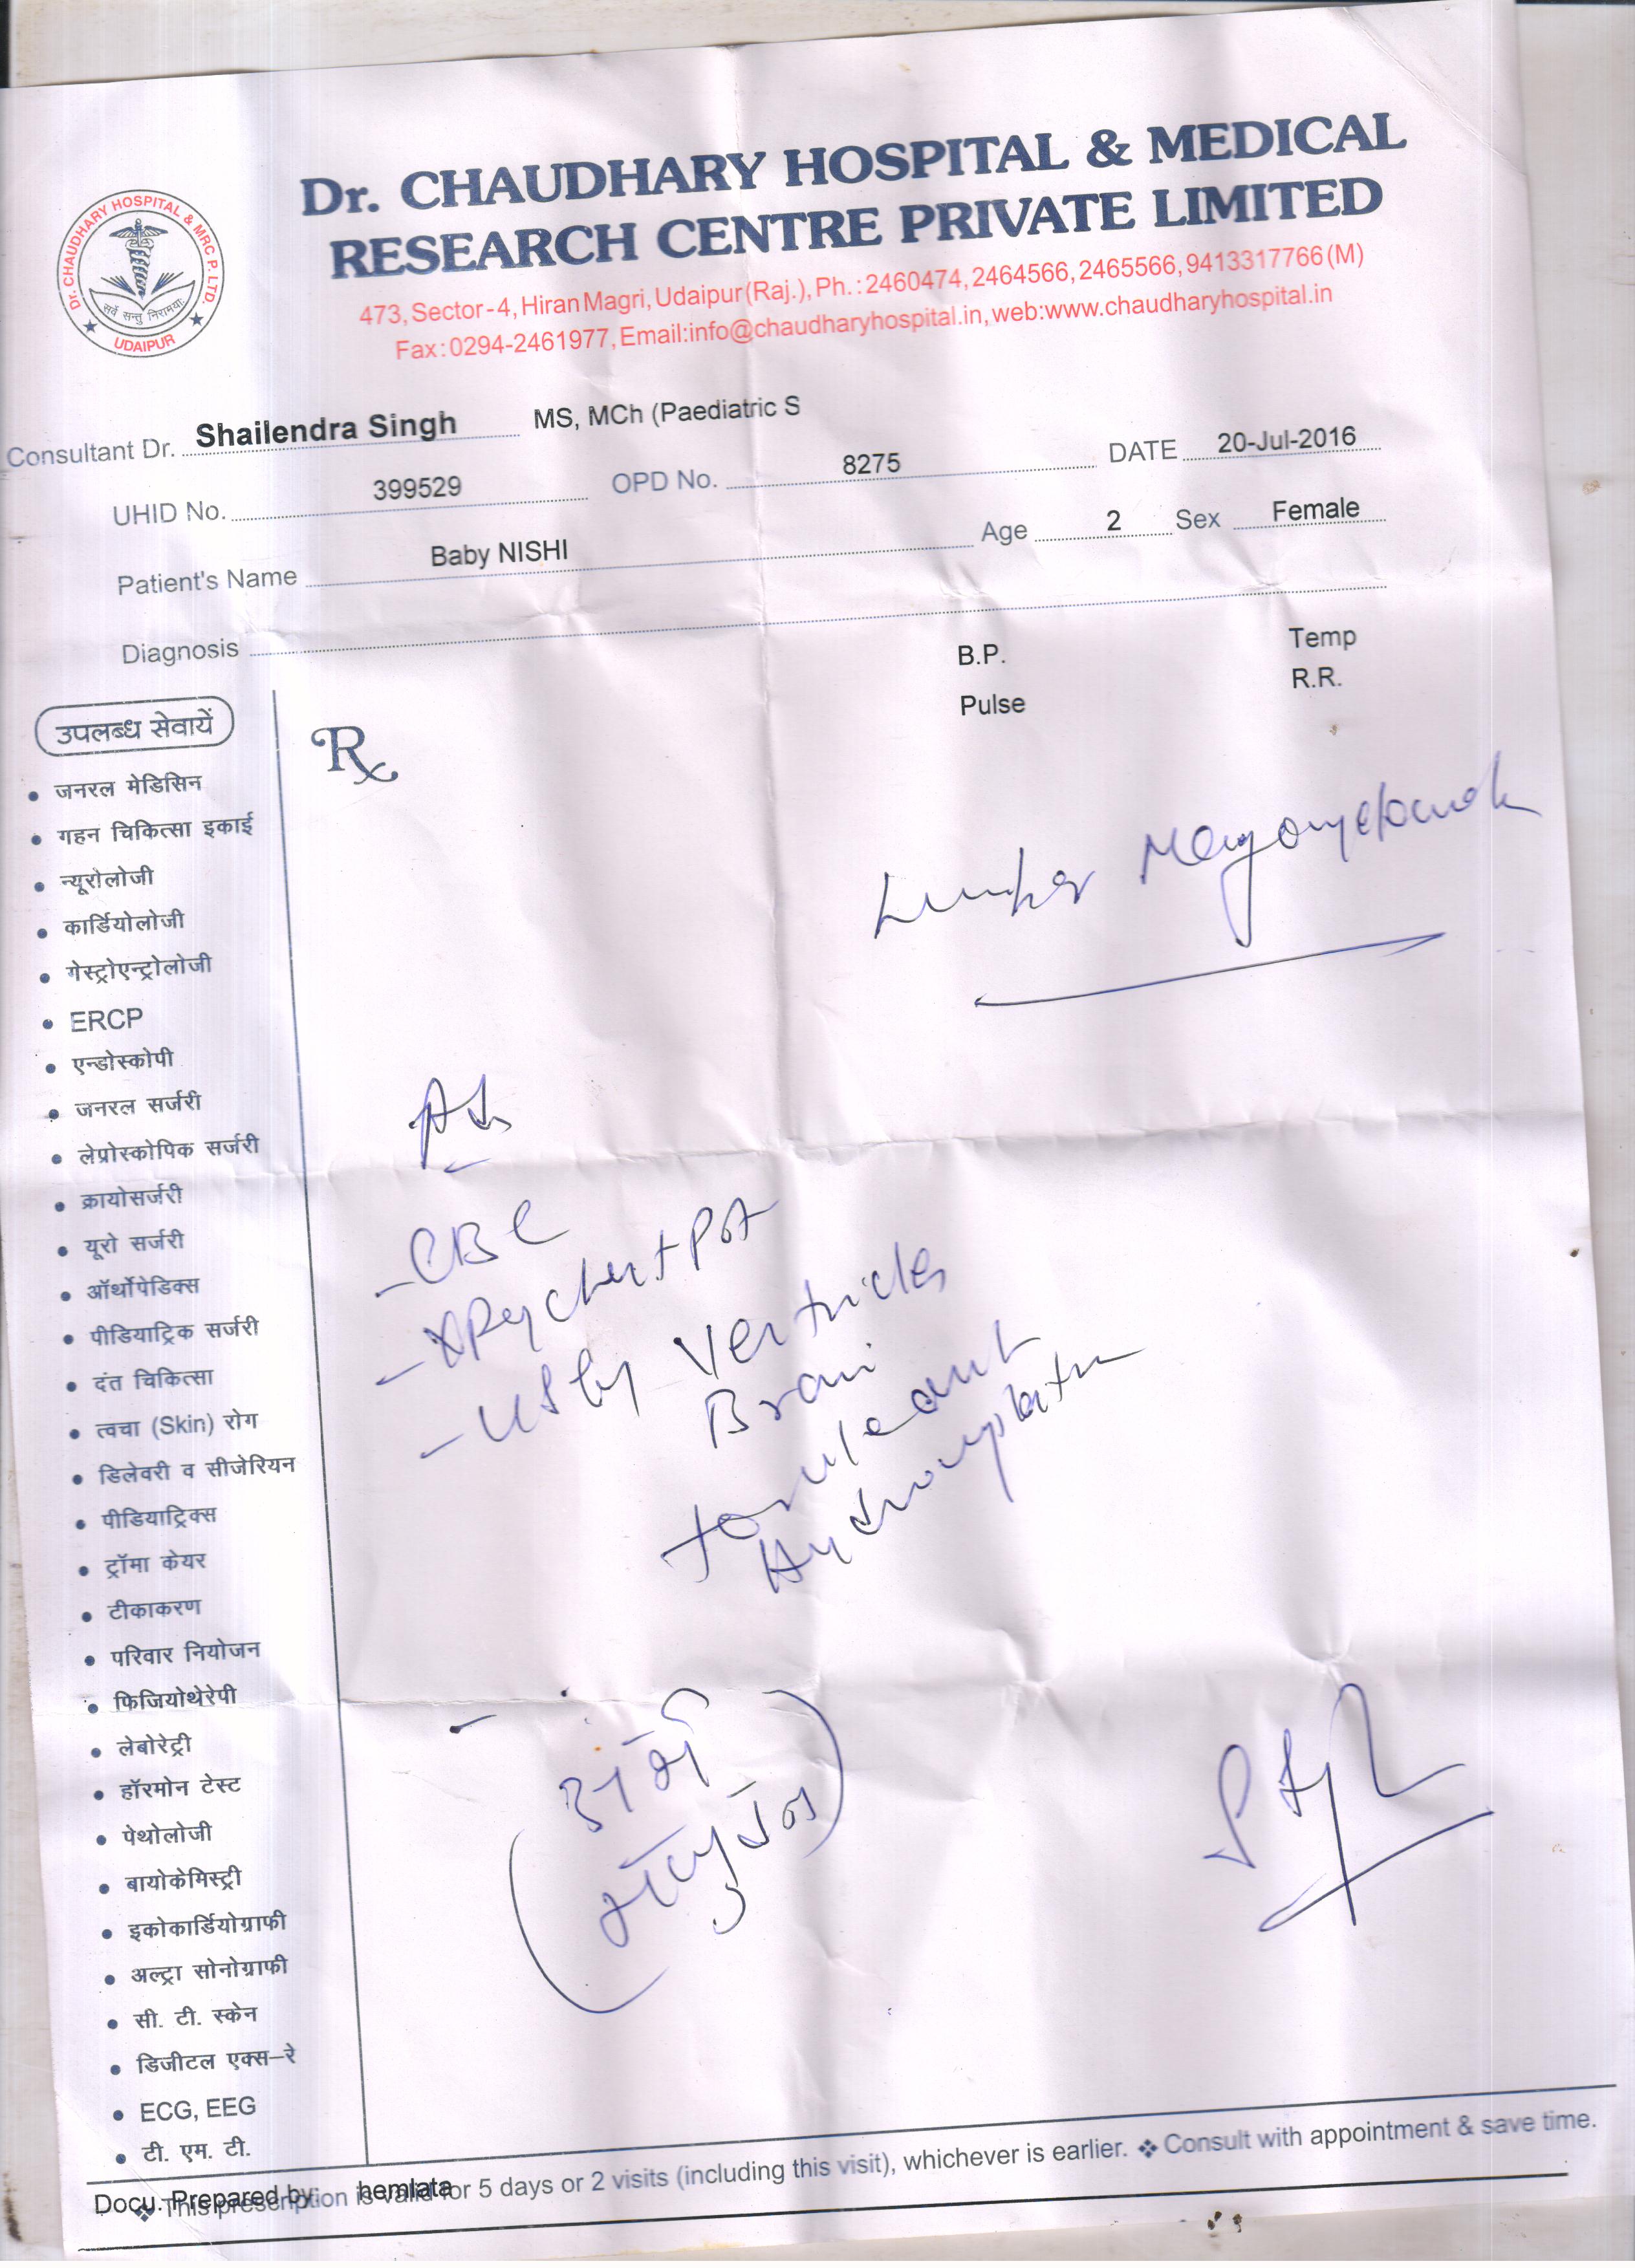 Dr. CHAUDHARY HOSPITAL & MEDICAL
RESEARCH CENTRE PRIVATE LIMITED
473, Sector-4, Hiran Magri, Udaipur (Raj.), Ph. : 2460474, 2464566, 2465566, 9413317766 (M)
Fax : 0294-2461977, Email:info@chaudharyhospital.in, web:www.chaudharyhospital.in
Dr. CHAUDHARY HOSPITAL & MRC P. LTD.
सर्वे सन्तु निरामयाः
UDAIPUR
Consultant Dr. Shailendra Singh MS, MCh (Paediatric S
UHID No. 399529 OPD No. 8275 DATE 20-Jul-2016
Patient's Name Baby NISHI Age 2 Sex Female
Diagnosis
B.P. Temp
Pulse R.R.
उपलब्ध सेवायें
• जनरल मेडिसिन
• गहन चिकित्सा इकाई
• न्यूरोलोजी
• कार्डियोलोजी
• गेस्ट्रोएन्ट्रोलोजी
• ERCP
• एन्डोस्कोपी
• जनरल सर्जरी
• लेप्रोस्कोपिक सर्जरी
• क्रायोसर्जरी
• यूरो सर्जरी
• ऑर्थोपेडिक्स
• पीडियाट्रिक सर्जरी
• दंत चिकित्सा
• त्वचा (Skin) रोग
• डिलेवरी व सीजेरियन
• पीडियाट्रिक्स
• ट्रॉमा केयर
• टीकाकरण
• परिवार नियोजन
• फिजियोथेरेपी
• लेबोरेट्री
• हॉरमोन टेस्ट
• पेथोलोजी
• बायोकेमिस्ट्री
• इकोकार्डियोग्राफी
• अल्ट्रा सोनोग्राफी
• सी. टी. स्केन
• डिजीटल एक्स-रे
• ECG, EEG
• टी. एम. टी.
Rx
- CBC
- XRay
- USG Ventricles
Brain
Docu. Prepared by: hemlata
❖ This prescription is valid for 5 days or 2 visits (including this visit), whichever is earlier. ❖ Consult with appointment & save time.